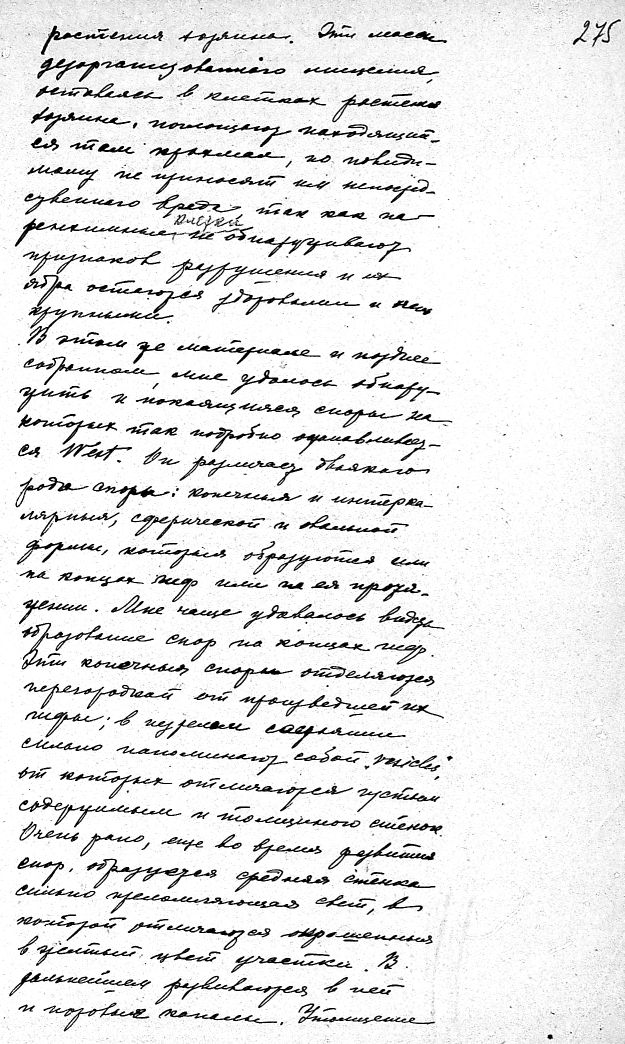 275
растения хозяина. Эти массы
дезорганизованного мицелия,
оставаясь в клетках растения
хозяина, поглощают находящий-
ся там крахмал, но повиди-
мому не приносят им непосред-
ственного вреда, так как па-
ренхимные клетки не обнаруживают
признаков разрушения и их
ядра остаются здоровыми и
крупными.
В этом же материале и позднее
собранном, мне удалось обнару-
жить и покоящиеся споры на
которых так подробно останавливает-
ся West. Он различает двоякого
рода споры: конечныя и интерка-
лярныя, сферической и овальной
формы, которыя образуются или
на концах гиф или на ея протя-
жении. Мне чаще удавалось видеть
образование спор на концах гиф.
Эти конечныя споры отделяются
перегородкой от произведшей их
гифы; в незрелом состоянии
сильно напоминают собой „vesicles",
от которых отличаются густым
содержимым и толщиною стенок.
Очень рано, еще во время развития
спор, образуется средняя стенка
сильно преломляющая свет, в
которой отличаются окрашенныя
в желтый цвет участки. В
дальнейшем развиваются в ней
и поровые каналы. Утолщение